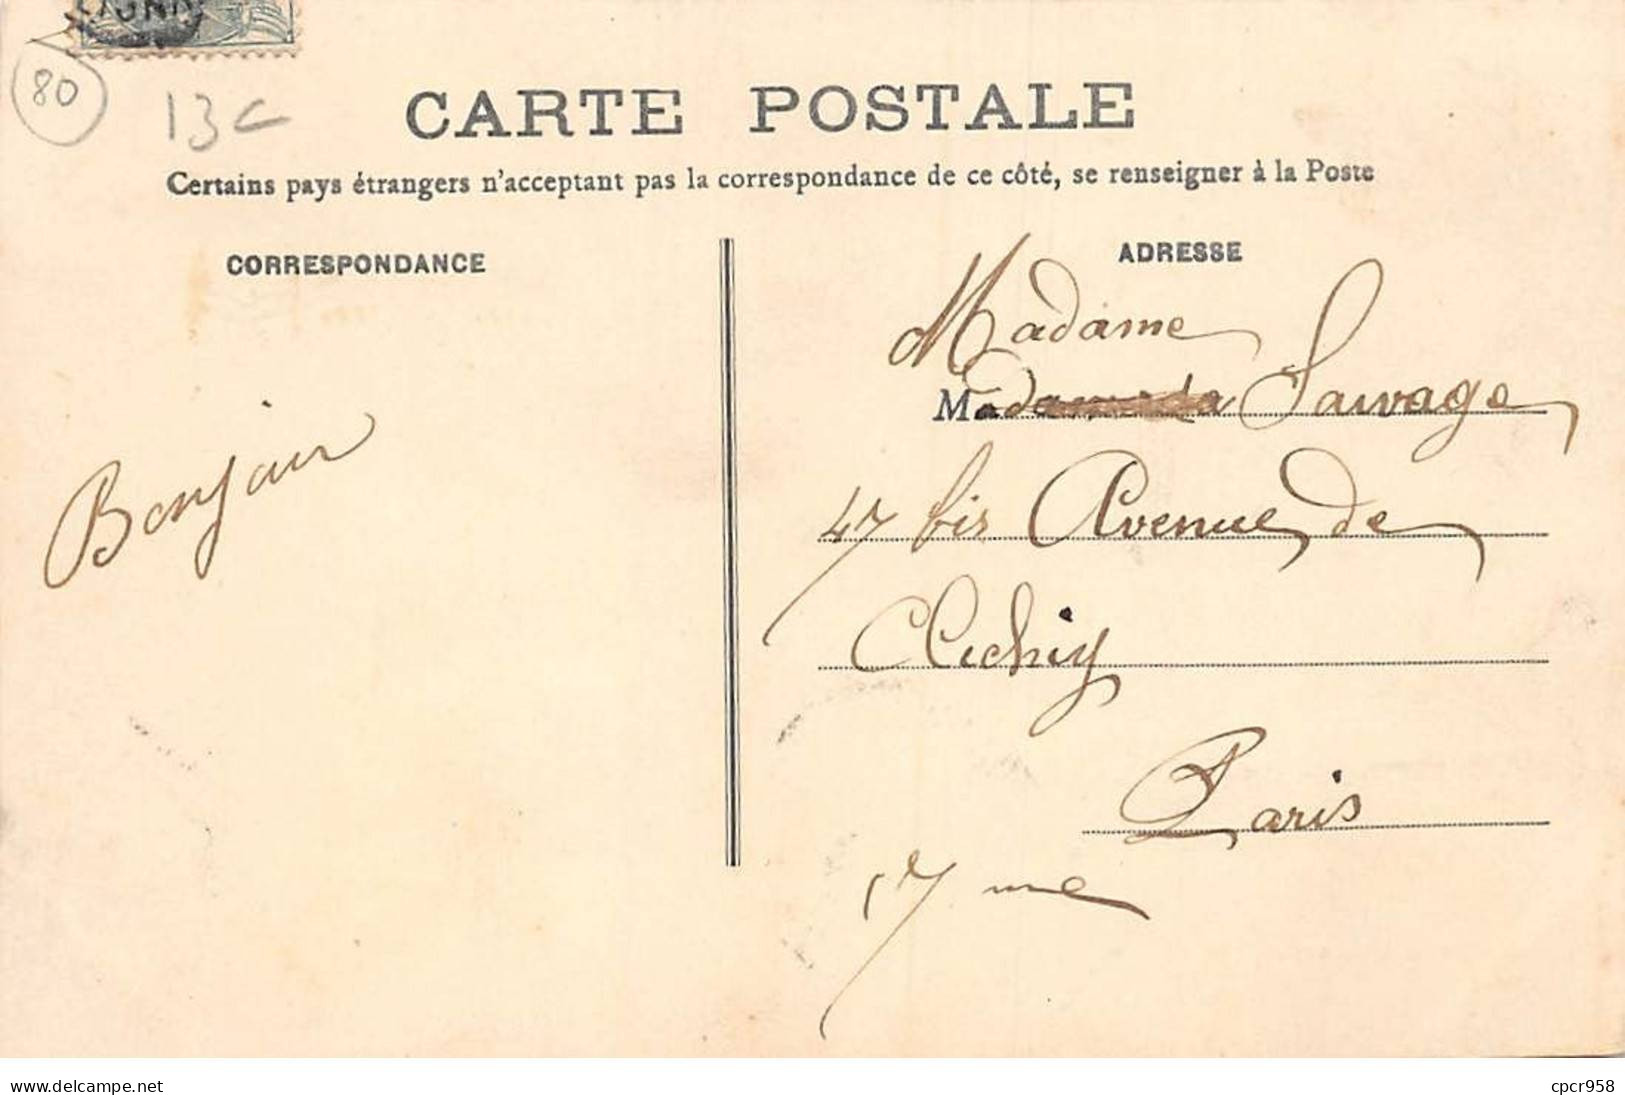 80
13c
CARTE POSTALE
Certains pays étrangers n'acceptant pas la correspondance de ce côté, se renseigner à la Poste
CORRESPONDANCE
Bonjour
ADRESSE
Madame
M Sauvage
47 bis Avenue de
Clichy
Paris
17 me
www.delcampe.net
cpcr958